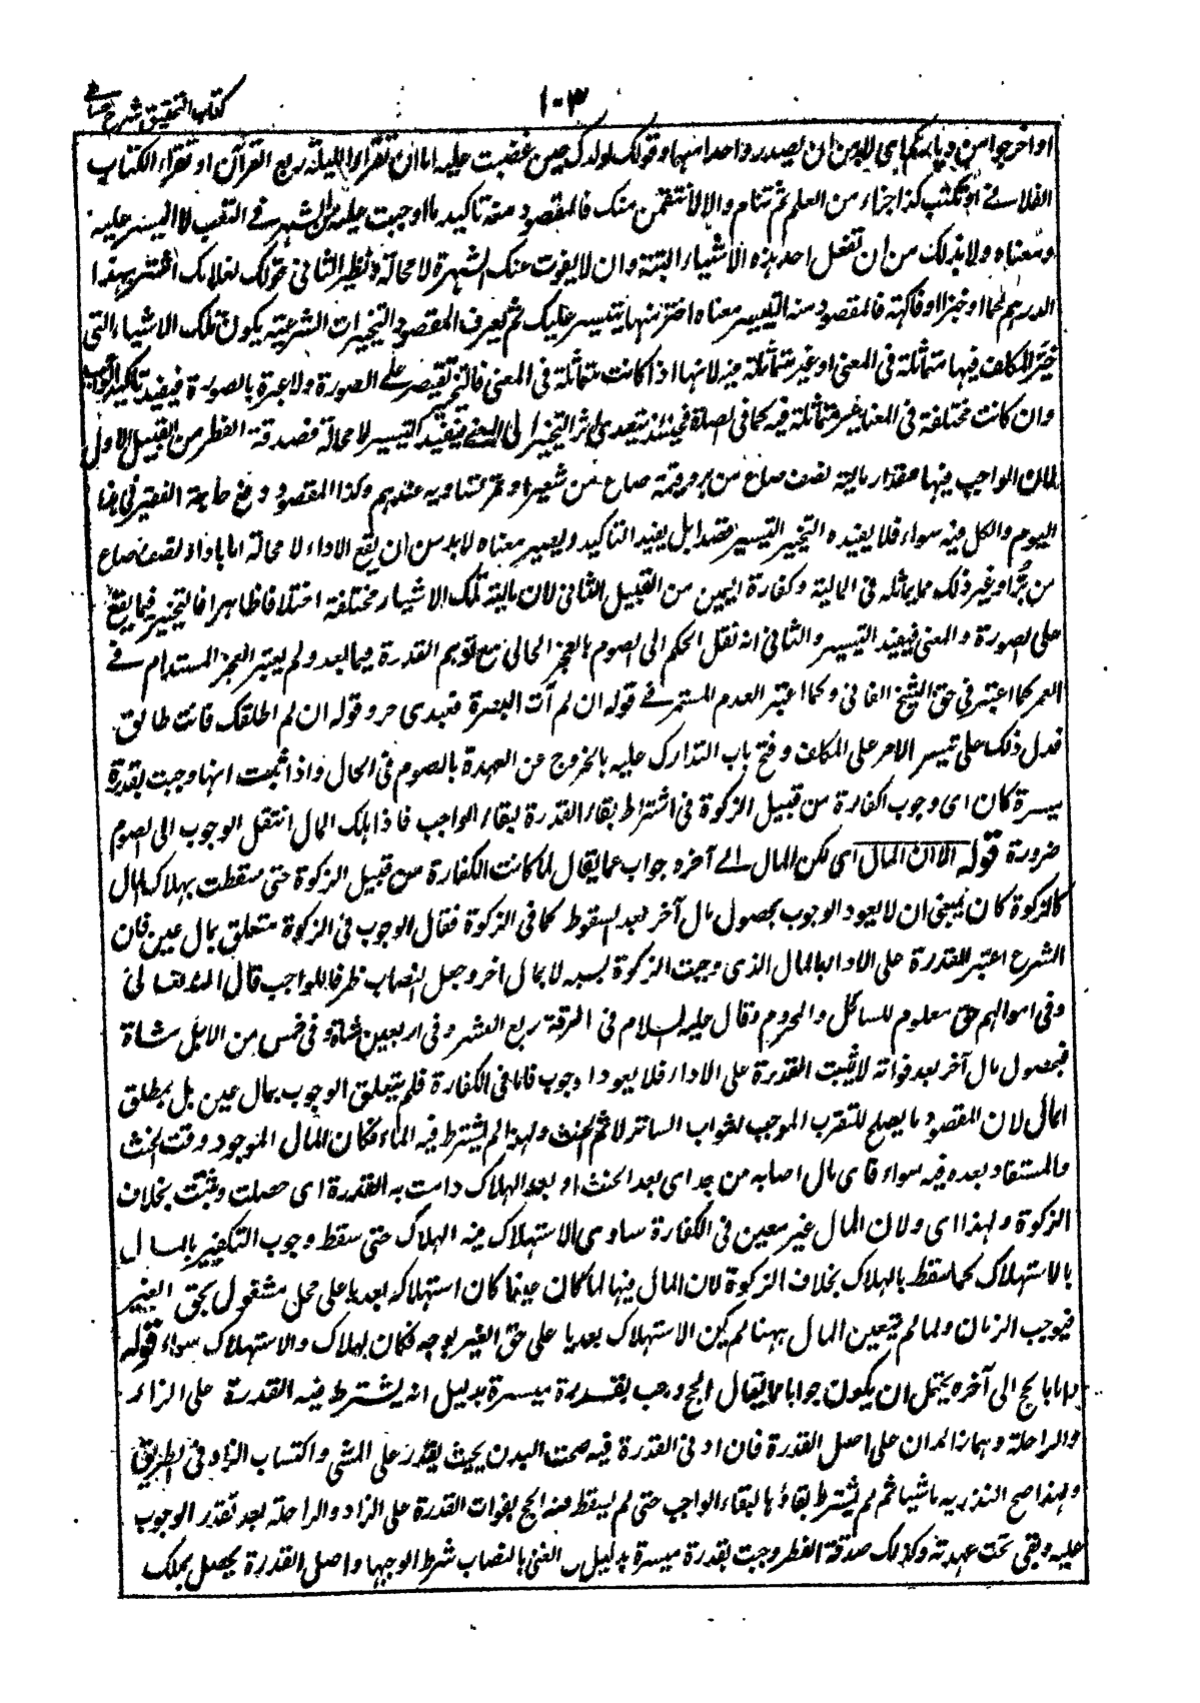 ١٠٣
كتاب التحقيق شرح حسامي
او اخرجوا من دياركم اى لابد من ان يصدر واحد منهما وقولك لولدك حين غضبت عليه اما ان تقراء الليلة ربع القرآن او تقراء الكتاب
الفلانى او تكتب كذا اجزاء من العلم ثم تنام والا لانتقمن منك فالمقصود منه تاكيد ما اوجبت عليه من السهر فى التعب لا اليسر عليه
ومعناه ولا بد لك من ان تفعل احد هذه الاشياء البتة وان لا يفوت عنك السهر لا محالة ونظير الثانى قولك لغلامك اشتر بهذا
الدرهم لحما او خبزا او فاكهة فالمقصود منه التيسير معناه اختر منها ما تيسر عليك ثم يعرف المقصود التخييرات الشرعية بكون تلك الاشياء التى
خير المكلف فيها متماثلة فى المعنى او غير متماثلة فيه لانها اذا كانت متماثلة فى المعنى فالتخيير تقتصر على الصورة ولا عبرة بالصورة فيفيد تاكيد الواجب
وان كانت مختلفة فى المعنى غير متماثلة فيه كما فى الصلة فحينئذ يتعدى اثر التخيير الى المعنى فيفيد التيسير لا محالة فصدقة الفطر من القبيل الاول
لان الواجب فيها مقدار مالية نصف صاع من بر وقيمة صاع من شعير او تمر متساوية عندهم وكذا المقصود دفع حاجة الفقير فى هذا
اليوم والكل فيه سواء فلا يفيده التخيير التيسير قصدا بل يفيد التاكيد ويصير معناه لابد من ان يقع الاداء لا محالة اما باداء نصف صاع
من بر او غير ذلك مما يماثله فى المالية وكفارة اليمين من القبيل الثانى لان مالية تلك الاشياء مختلفة اختلافا ظاهرا فالتخيير فيها يقع
على الصورة والمعنى فيفيد التيسير والثانى انه نقل الحكم الى الصوم بالعجز الحالى مع توهم القدرة فيما بعد ولم يعتبر العجز المستدام فى
العمر كما اعتبر فى حق الشيخ الفانى وكما اعتبر العدم المستمر فى قوله ان لم آت البصرة فعبدى حر وقوله ان لم اطلقك فانت طالق
فدل ذلك على تيسر الامر على المكلف وفتح باب التدارك عليه بالخروج عن العهدة بالصوم فى الحال واذا ثبت انها وجبت بقدرة
ميسرة كان اى وجوب الكفارة من قبيل الزكوة فى اشتراط بقاء القدرة لبقاء الواجب فاذا هلك المال انتقل الوجوب الى الصوم
ضرورة قوله الا ان المال اى لكن المال الى آخره جواب عما يقال لما كانت الكفارة من قبيل الزكوة حتى سقطت بهلاك المال
كالزكوة كان ينبغى ان لا يعود الوجوب بحصول مال آخر بعد السقوط كما فى الزكوة فقال الوجوب فى الزكوة متعلق بمال عين فان
الشرع اعتبر القدرة على الاداء بالمال الذى وجبت الزكوة بسببه لا بمال اخر وجعل النصاب ظرفا للواجب قال الله تعالى
وفى اموالهم حق معلوم للسائل والمحروم وقال عليه السلام فى الرقة ربع العشر وفى اربعين شاة وفى خمس من الابل شاة
فبحصول مال آخر بعد فواته لا يثبت القدرة على الاداء فلا يعود الوجوب فاما فى الكفارة فلم يتعلق الوجوب بمال عين بل بمطلق
المال لان المقصود ما يصلح للتقرب الموجب لثواب الساتر لاثم الحنث ولهذا لم يشترط فيه النماء فكان المال الموجود وقت الحنث
والمستفاد بعده فيه سواء فاى مال اصابه من بعد اى بعد الحنث او بعد الهلاك دامت به القدرة اى حصلت وثبتت بخلاف
الزكوة ولهذا اى ولان المال غير معين فى الكفارة ساوى الاستهلاك فيه الهلاك حتى سقط وجوب التكفير بالمال
بالاستهلاك كما سقط بالهلاك بخلاف الزكوة لان المال فيها لما كان عينا كان استهلاكه تعديا على محل مشغول بحق الغير
فيوجب الزمان ولما لم يتعين المال ههنا لم يكن الاستهلاك تعديا على حق الغير بوجه فكان الهلاك والاستهلاك سواء قوله
واما الحج الى آخره يحتمل ان يكون جوابا عما يقال الحج وجب بقدرة ميسرة بدليل انه يشترط فيه القدرة على الزاد
والراحلة وهما زائدان على اصل القدرة فان ادنى القدرة فيه صحت البدن بحيث يقدر على المشى واكتساب الزاد فى الطريق
ولهذا صح النذر به ماشيا ثم لم يشترط بقاؤها لبقاء الواجب حتى لم يسقط عنه الحج بفوات القدرة على الزاد والراحلة بعد تقدر الوجوب
عليه وبقى تحت عهدته وكذلك صدقة الفطر وجبت بقدرة ميسرة بدليل ان الغنى بالنصاب شرط لوجوبها واصل القدرة يحصل بملك